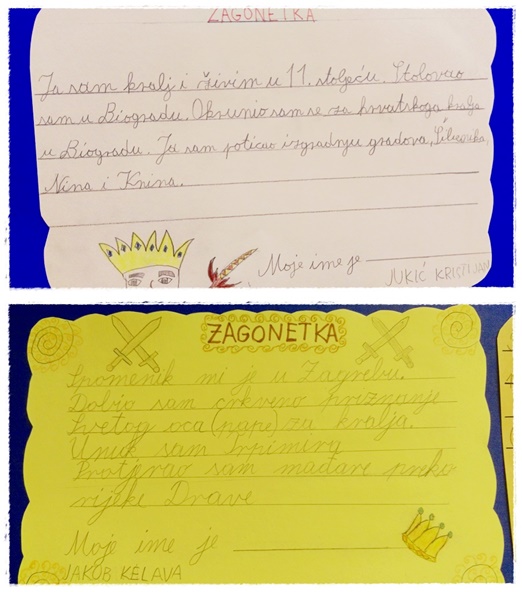 ZAGONETKA
Ja sam kralj i živim u 11. stoljeću. Stolovao
sam u Biogradu. Okrunio sam se za hrvatskoga kralja
u Biogradu. Ja sam poticao izgradnju gradova, Šibenika,
Nina i Knina.
Moje ime je
JUKIĆ KRISTIJAN
ZAGONETKA
Spomenik mi je u Zagrebu.
Dobio sam crkveno priznanje
Svetog oca (pape) za kralja.
Unuk sam Trpimira
Protjerao sam mađare preko
rijeke Drave
Moje ime je
JAKOB KELAVA